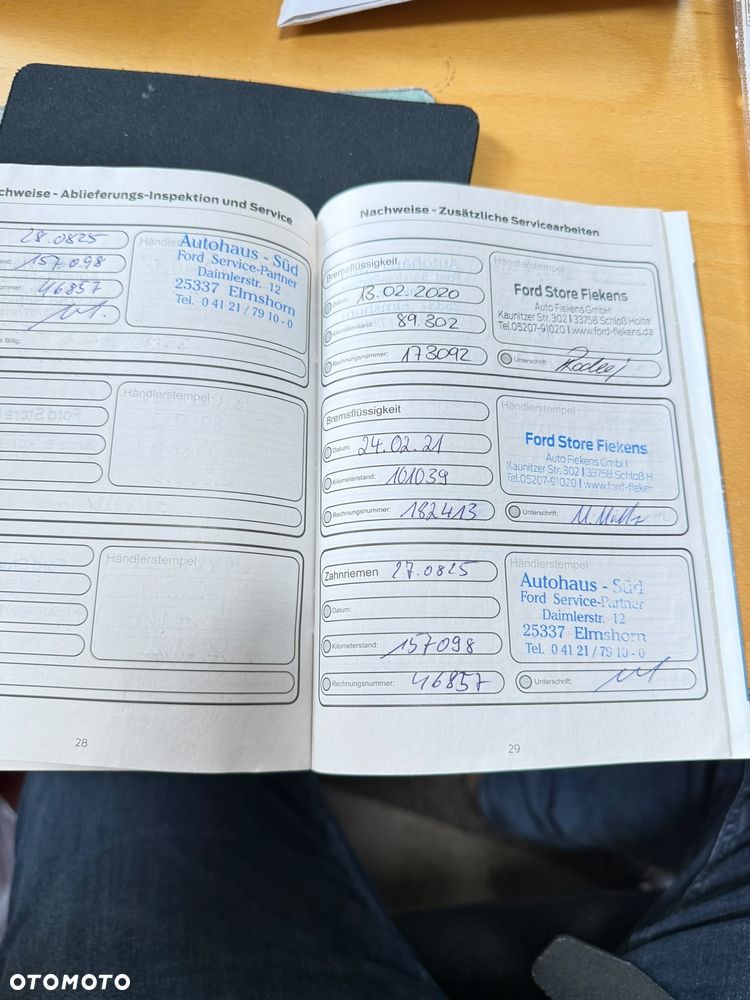 chweise - Ablieferungs-Inspektion und Service
28.0825
and: 157098
ummer: 46857
e fällig:
Händler
Autohaus - Süd
Ford Service-Partner
Daimlerstr. 12
25337 Elmshorn
Tel. 0 41 21 / 79 10 - 0
Händlerstempel
Händlerstempel
28
Nachweise - Zusätzliche Servicearbeiten
Bremsflüssigkeit
Datum: 13.02.2020
Kilometerstand: 89.302
Rechnungsnummer: 173092
Händlerstempel
Ford Store Fiekens
Auto Fiekens GmbH
Kaunitzer Str. 302 I 33758 Schloß Holte
Tel.05207-91020 I www.ford-fiekens.de
Unterschrift:
Bremsflüssigkeit
Datum: 24.02.21
Kilometerstand: 101039
Rechnungsnummer: 182413
Händlerstempel
Ford Store Fiekens
Auto Fiekens GmbH
Kaunitzer Str. 302 I 33758 Schloß H
Tel.05207-91020 I www.ford-fieken
Unterschrift:
Zahnriemen 27.0825
Datum:
Kilometerstand: 157098
Rechnungsnummer: 46857
Händlerstempel
Autohaus - Süd
Ford Service-Partner
Daimlerstr. 12
25337 Elmshorn
Tel. 0 41 21 / 79 10 - 0
Unterschrift:
29
OTOMOTO